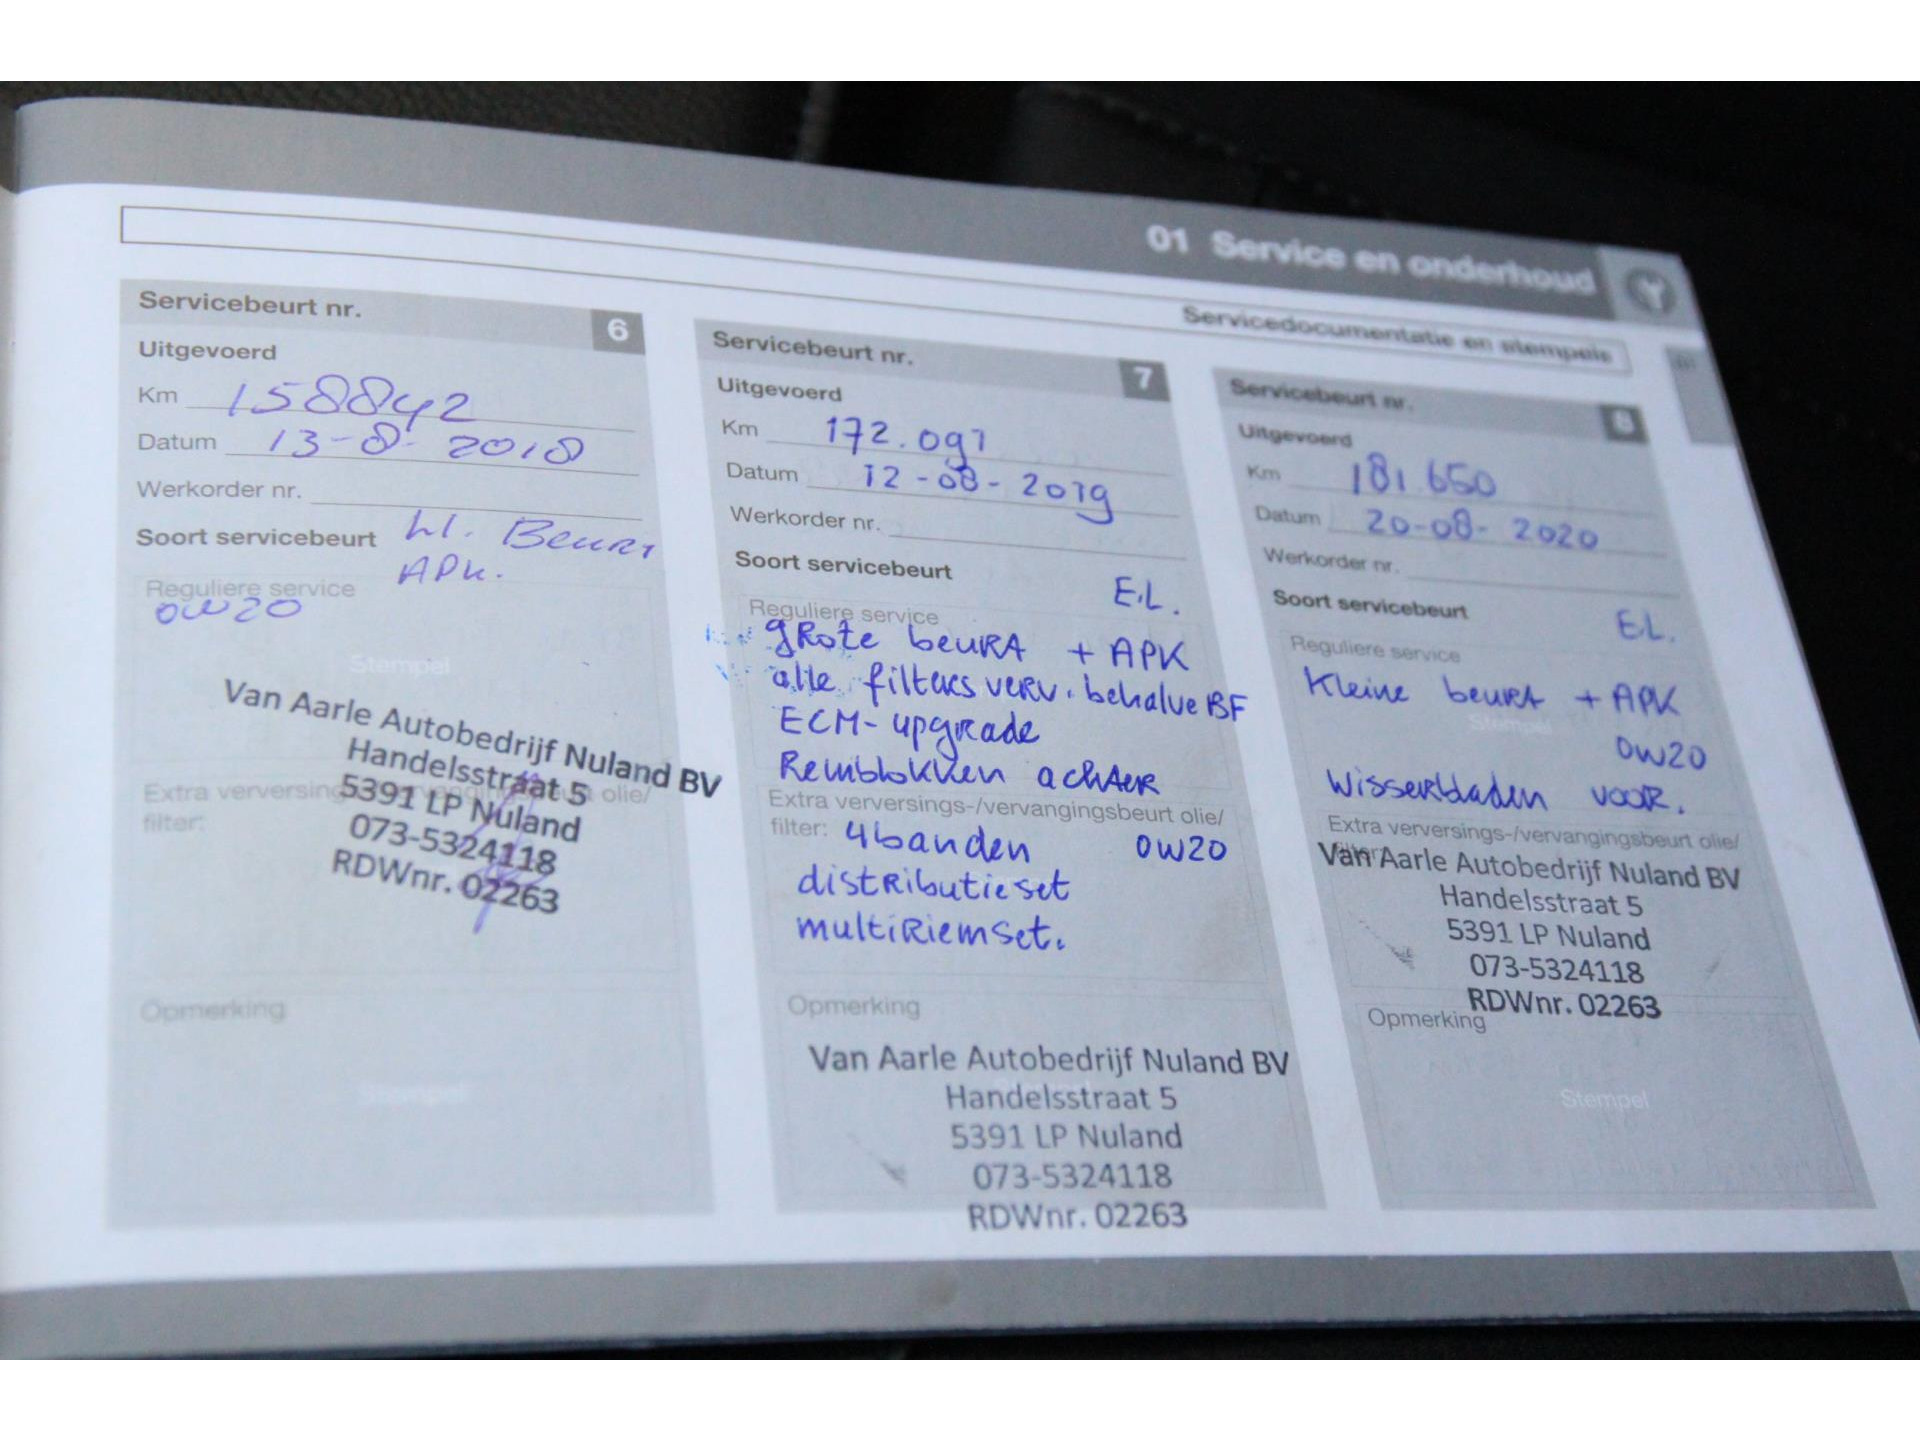 01 Service en onderhoud
Servicedocumentatie en stempels
Servicebeurt nr. 6
Uitgevoerd
Km 158842
Datum 13-8-2018
Werkorder nr.
Soort servicebeurt kl. Beurt
APK.
Reguliere service
0W20
Stempel
Van Aarle Autobedrijf Nuland BV
Handelsstraat 5
5391 LP Nuland
073-5324118
RDWnr. 02263
Extra verversings-/vervangingsbeurt olie/
filter:
Opmerking
Stempel
Servicebeurt nr. 7
Uitgevoerd
Km 172.091
Datum 12-08-2019
Werkorder nr.
Soort servicebeurt
E.L.
Reguliere service
grote beurt + APK
alle filters verv. behalve BF
ECM-upgrade
Remblokken achter
Extra verversings-/vervangingsbeurt olie/
filter: 4 banden 0W20
distributieset
multiriemset.
Opmerking
Van Aarle Autobedrijf Nuland BV
Handelsstraat 5
5391 LP Nuland
073-5324118
RDWnr. 02263
Servicebeurt nr. 8
Uitgevoerd
Km 181.650
Datum 20-08-2020
Werkorder nr.
Soort servicebeurt
E.L.
Reguliere service
Kleine beurt + APK
Stempel
0W20
Wisserbladen voor.
Extra verversings-/vervangingsbeurt olie/
filter:
Van Aarle Autobedrijf Nuland BV
Handelsstraat 5
5391 LP Nuland
073-5324118
RDWnr. 02263
Opmerking
Stempel